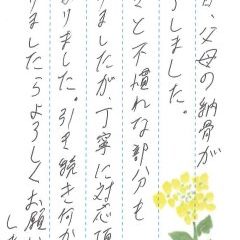 、父母の納骨が
うしました。
々と不慣れな部分も
りましたが、丁寧に対応頂
かりました。引き続き何か
りましたらよろしくお願い
し